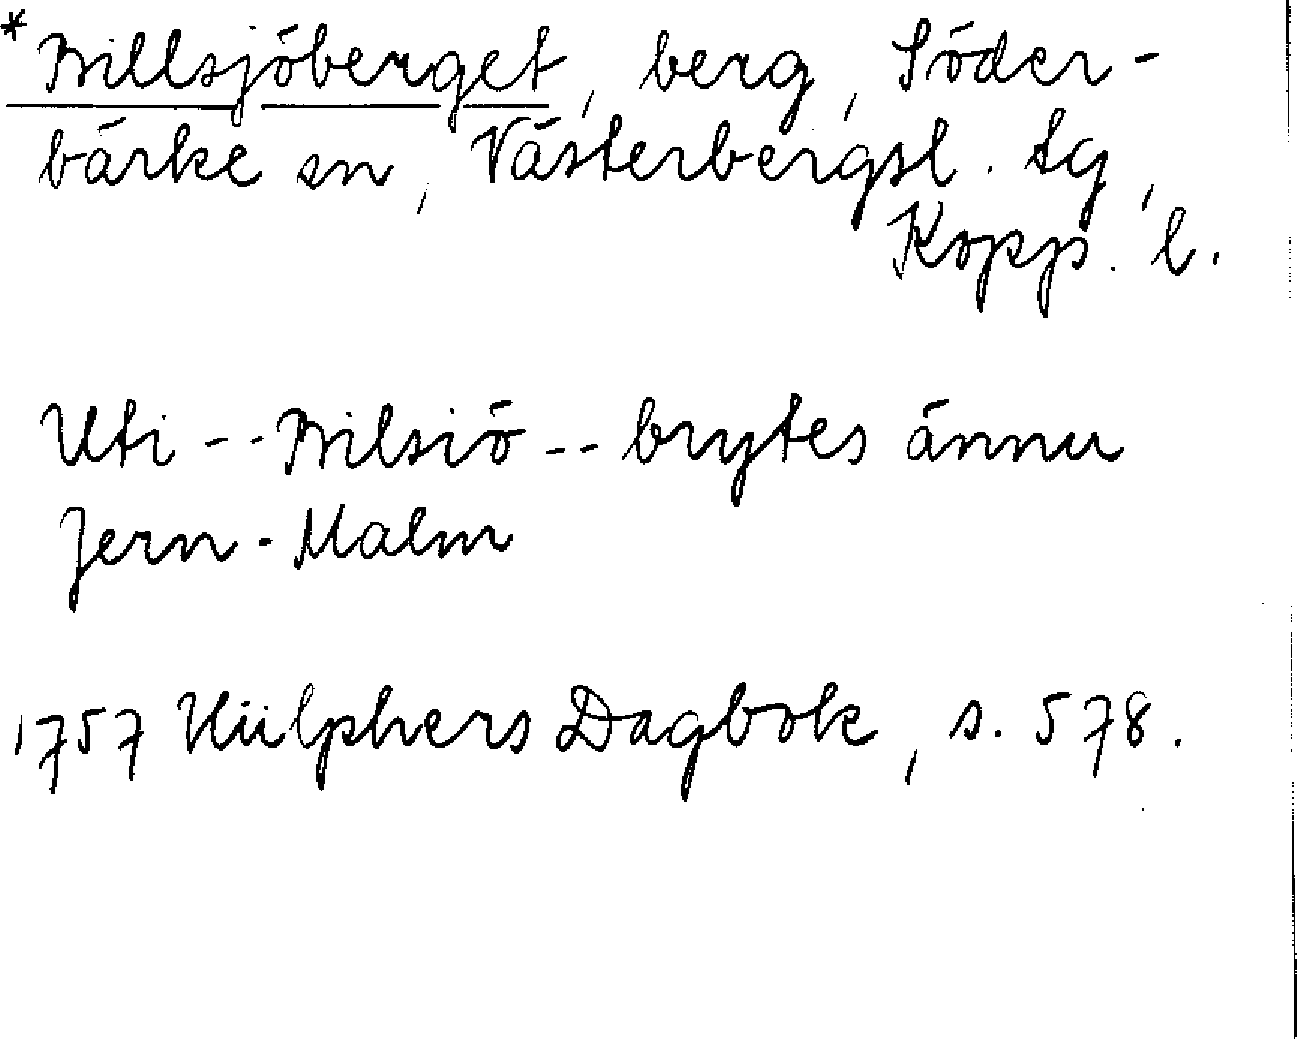 *Billsjöberget, berg, Söder-
bärke sn, Västerbergsl. tg,
Kopp. l.
Uti -- Bilsiö -- brytes ännu
Jern-Malm
1757 Hülphers Dagbok, s. 578.